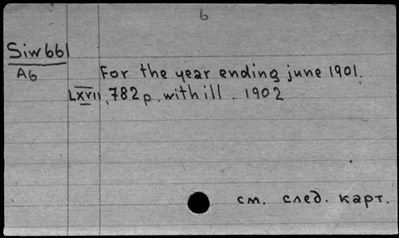 6
Siw661
A6
For the year ending june 1901.
LXVII, 782 p. with ill. 1902
см. след. карт.